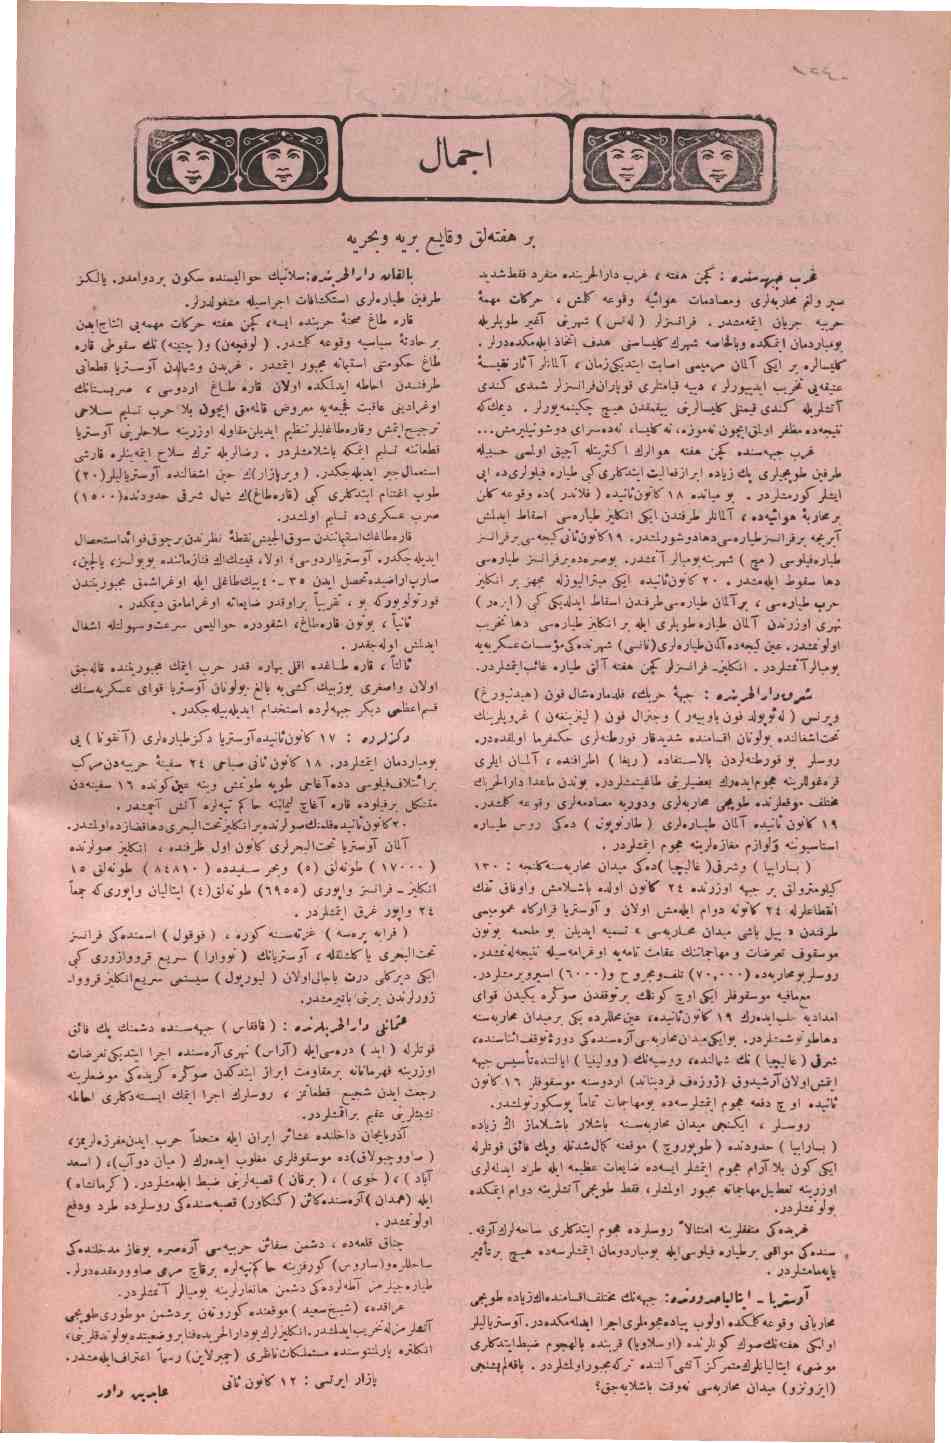 اجمال
بر هفته‌لق وقایع بریه وبحریه
غرب جبهه‌سنده : كچن هفته ، غرب دارالحربنده منفرد فقط شدید
سپر ولغم محاربه‌لری ومصادمات هوائیه وقوعه كلمش ، حركات مهمهٔ
حربیه جریان ایتمه‌مشدر . فرانسزلر ( له‌نس ) شهرینی آغیر طوپلریله
بومباردمان ایتمكده وبالخاصه شهرك كلیساسنی هدف اتخاذ ایله‌مكده‌درلر .
كلیسالره بر ایكی آلمان مرمیسی اصابت ایتدیكی زمان ، آلمانلر آثار نفیسهٔ
عتیقه‌یی تخریب ایدییورلر ، دییه قیامتلری قوپاران فرانسزلر شمدی كندی
آتشلریله كندی قیمتلی كلیسالرینی ییقمقدن هیچ چكینمه‌یورلر . دیمك كه
نتیجه‌ده مظفر اولق ایچون نه‌موزه ، نه كلیسا ، نه‌ده سرای دوشونیلیرمش...
غرب جبهه‌سنده كچن هفته هوالرك اكثریتله آچیق اولمسی حسبیله
طرفین طوپجیلری پك زیاده ابراز فعالیت ایتدكلری كبی طیاره فیلولری‌ده ایی
ایشلر كورمشلردر . بو میانده ۱۸ كانون ثانیده ( فلاندر )ده وقوعه كلن
بر محاربهٔ هوائیه‌ده ، آلمانلر طرفندن ایكی انكلیز طیاره‌سی اسقاط ایدلمش
آیریجه بر فرانسز طیاره‌سی دها دوشورلمشدر. ۱۹ كانون ثانی كیجه‌سی بر فرانسز
طیاره فیلوسی ( مچ ) شهرینه بومبالر آتمشدر. بوصره‌ده بر فرانسز طیاره‌سی
دها سقوط ایله‌مشدر . ۲۰ كانون ثانیده ایكی میترالیوزله مجهز بر انكلیز
حرب طیاره‌سی ، بر آلمان طیاره‌سی طرفندن اسقاط ایدلدیكی كبی ( ایزه‌ر )
نهری اوزرندن آلمان طیاره طوپلری ایله بر انكلیز طیاره‌سی دها تخریب
اولونمشدر. عین كیجه‌ده آلمان طیاره‌لری (نانسی) شهرنده‌كی مؤسسات عسكریه‌یه
بومبالر آتمشلردر . انكلیز ـ فرانسزلر كچن هفته آلتی طیاره غائب ایتمشلردر.
شرق دارالحربنده : جبههٔ حربك ، فلدماره‌شال فون (هیندنبورغ)
وپرنس ( له‌ئوپولد فون باویه‌ر ) وجنرال فون ( لینزینغه‌ن ) غروپلرینك
تحت اشغالنده بولونان اقسامنده شدید قار فورطنه‌لری حكمفرما اولمقده‌در.
روسلر بو فورطنه‌لردن بالاستفاده ( ریغا ) اطرافنده ، آلمان ایلری
قره‌غوللرینه هجوم ایده‌رك بعضیلرینی طاغیتمشلردر. بوندن ماعدا دارالحربك
مختلف موقعلرنده طوپجی محاربه‌لری ودوریه مصادمه‌لری وقوعه كلمشدر.
۱۹ كانون ثانیده آلمان طیاره‌لری ( طارنوپول ) ده‌كی روس طیاره
استاسیوننه ولوازم مغازه‌لرینه هجوم ایتمشلردر .
( بسارابیا ) وشرقی ( غالیچیا )ده‌كی میدان محاربه‌سنه كلنجه : ۱۳۰
كیلومترولق بر جبهه اوزرنده ۲۴ كانون اولده باشلامش واوفاق تفك
انقطاعلرله ۲۴ كانونه دوام ایله‌مش اولان و آوستریا قرارگاه عمومیسی
طرفندن « ییل باشی میدان محاربه‌سی » تسمیه ایدیلن بو ملحمه بوتون
موسقوف تعرضات و مهاجماتنك عقامت تامه‌یه اوغرامه‌سیله نتیجه‌لنمشدر.
روسلر بو محاربه‌ده (۷۰,۰۰۰) تلف ومجروح و(۶۰۰۰) اسیر ویرمشلردر.
مع‌مافیه موسقوفلر ایكی اوچ كونلك بر توقفدن صوكره یكیدن قوای
امدادیه جلب ایده‌رك ۱۹ كانون ثانیده ، عین محللرده یكی بر میدان محاربه‌سنه
دها طوتوشمشلردر. بو ایكی میدان محاربه‌سی آره‌سنده‌كی دورهٔ توقف اثناسنده،
شرقی ( غالیچیا ) نك شمالنده ، روسیه‌نك ( وولینیا ) ایالتنده تأسیس جبهه
ایتمش اولان آرشیدوق (ژوزه‌ف فردیناند) اردوسنه موسقوفلر ۱۶ كانون
ثانیده اوچ دفعه هجوم ایتمشلرسه‌ده بو مهاجمات تماماً پوسكورتولمشدر.
روسلر ، ایكنجی میدان محاربه‌سنه باشلار باشلاماز اك زیاده
( بسارابیا ) حدودنده ( طوپوروچ ) موقعنه كمال شدتله وپك فائق قوتلرله
ایكی كون بلا آرام هجوم ایتمشلر ایسه‌ده ضایعات عظیمه ایله طرد ایدلمه‌لری
اوزرینه تعطیل مهاجماته مجبور اولمشلر، فقط طوپجی آتشلرینه دوام ایتمكده
بولونمشلردر.
غربده‌كی متفقلرینه امتثالاً روسلرده هجوم ایتدكلری ساحه‌لرك آرقه‌
سنده‌كی مواقعی بر طیاره فیلوسی ایله بومباردومان ایتمشلرسه‌ده هیچ بر تأثیر
یاپه‌مامشلردر .
آوستریا ـ ایتالیا حدودنده: جبهه‌نك مختلف اقسامنده اك زیاده طوپجی
محارباتی وقوعه كلمكده اولوب پیاده هجوملری اجرا ایدلمه‌مكده‌در. آوستریالیلر
اوایكی هفته‌نك صوك كونلرنده (اوسلاویا) قربنده بالهجوم ضبط ایتدكلری
موضعی ، ایتالیانلرك متمركز آتشی آلتنده تركه مجبور اولمشلردر . باقه‌لم بشنجی
(ایزونزو) میدان محاربه‌سی نه‌وقت باشلایه‌جق؟
بالقان دارالحربنده: سلانیك حوالیسنده سكون بر دوامدر. یالكز
طرفین طیاره‌لری استكشافات اجراسیله مشغولدرلر.
قاره طاغ صحنهٔ حربنده ایسه ، كچن هفته حركات مهمه‌یی انتاج ایدن
بر حادثهٔ سیاسیه وقوعه كلمشدر. ( لوفچه‌ن) و( چتینه) نك سقوطی قاره
طاغ حكومتنی استیمانه مجبور ایتمشدر . غربدن وشمالدن آوستریا قطعاتی
طرفندن احاطه ایدلمكده اولان قاره طاغ اردوسی ، صربستانك
اوغرادیغی عاقبت فجیعه‌یه معروض قالمه‌مق ایچون بلا حرب تسلیم سلاحی
ترجیح ایتمش وقاره طاغلیلر تنظیم ایدیلن مقاوله اوزرینه سلاحلرینی آوستریا
قطعاتنه تسلیم ایتمكه باشلامشلردر . رضالریله ترك سلاح ایتمه‌ینلره قارشی
استعمال جبر ایدیله‌جكدر. ( ویرپازار)ك حین اشغالنده آوستریالیلر (۲۰)
طوپ اغتنام ایتدكلری كبی (قاره طاغ)ك شمال شرقی حدودنده (۱۵۰۰)
صرب عسكری‌ده تسلیم اولمشدر.
قاره طاغك استیماننندن سوق الجیش نقطهٔ نظرندن برچوق فوائد استحصال
ایدیله‌جكدر. آوستریا اردوسی؛ اولا، قیشك اك فنا زماننده بویولسز ، یالچین،
صارپ اراضیده تحصل ایدن ۳۵ـ۴۰ بیك طاغلی ایله اوغراشمق مجبوریتندن
قورتولویور كه بو ، تقریباً بر اوقدر ضایعاته اوغرامامق دیمكدر .
ثانیاً ، بوتون قاره طاغ، اشقودره حوالیسی سرعت وسهولتله اشغال
ایدلمش اوله‌جقدر .
ثالثاً ، قاره طاغده اقلی بهاره قدر حرب ایتمك مجبوریتنده قاله‌جق
اولان واصغری یوزبیك كشی‌یه بالغ بولونان آوستریا قوای عسكریه‌سنك
قسم اعظمی دیگر جبهه‌لرده استخدام ایدیله‌بیله‌جكدر .
دكزلرده : ۱۷ كانون ثانیده آوستریا دكز طیاره‌لری (آنقونا ) یی
بومباردمان ایتمشلردر. ۱۸ كانون ثانی صباحی ۲۴ سفینهٔ حربیه‌دن مركب
بر ائتلاف فیلوسی دده آغاجی طوپه طوتمش وینه عین كونده ۱۶ سفینه‌دن
متشكل بر فیلوده قاره آغاچ لیماننه حاكم تپه‌لره آتش آچمشدر.
۲۰ كانون ثانیده فلمنك صولرنده بر انكلیز تحت البحری دها قضازده اولمشدر.
آلمان آوستریا تحت البحرلری كانون اول ظرفنده ، انكلیز صولرنده
(۱۷۰۰۰ ) طونه‌لق (۵) وبحر سفیدده ( ۸۴۸۱۰ ) طونه‌لق ۱۵
انكلیز ـ فرانسز واپوری ( ۶۹۵۵ ) طونه‌لق (۴) ایتالیان واپوری كه جمعاً
۲۴ واپور غرق ایتمشلردر .
( فرایه پره‌سه ) غزته‌سنه كوره ، ( فوقول ) اسمنده‌كی فرانسز
تحت البحری یاكلشلقله ، آوستریانك ( نووارا ) سریع قرووازوری كبی
ایكی دیركلی درت باجالی اولان ( لیورپول ) سیستمی سریع انكلیز قرووا
زورلرندن برینی باتیرمشدر.
عثمانلی دارالحربلرنده : ( قافقاس ) جبهه‌سنده دشمنك پك فائق
قوتلرله ( اید ) دره‌سی ایله (آراس) نهری آره‌سنده اجرا ایتدیكی تعرضات
اوزرینه قهرمانانه بر مقاومت ابراز ایتدكدن صوكره كریده‌كی موضعلرینه
رجعت ایدن شجیع قطعاتمز ، روسلرك اجرا ایتمك ایسته‌دكلری احاطه
تشبثلرینی عقیم براقمشلردر.
آذربایجان داخلنده عشائر ایران ایله متحداً حرب ایدن مفرزه‌لریمز،
( صاووجبولاق)ده موسقوفلری مغلوب ایده‌رك ( میان دوآب)، ( اسعد
آباد )، ( خوی ) ، ( برقان ) قصبه‌لرینی ضبط ایله‌مشلردر. ( كرمانشاه )
ایله (همدان) آره‌سنده كائن ( كنكاور) قصبه‌سنده‌كی روسلرده طرد ودفع
اولونمشدر .
چناق قلعه‌ده ، دشمن سفائن حربیه‌سی آره‌صره بوغاز مدخلنده‌كی
ساحللره و(ساروس) كورفزینه حاكم تپه‌لره برقاچ مرمی صاوورمقده‌درلر.
طیاره‌جیلرمز آطه‌لرده‌كی دشمن هانغارلرینه بومبالر آتمشلردر.
عراقده ، (شیخ سعید ) موقعنده كورونه‌ن بر دشمن موطوری طوپجی
آتشلرمزله تخریب ایدلمشدر. انكلیزلرك بو دارالحربده فنا بر وضعیتده بولوندقلرینی،
انكلتره پارلمنتوسنده مستملكات ناظری (چمبرلاین) رسماً اعتراف ایله‌مشدر.
بازار ایرتسی : ۱۲ كانون ثانی
عابدین داور